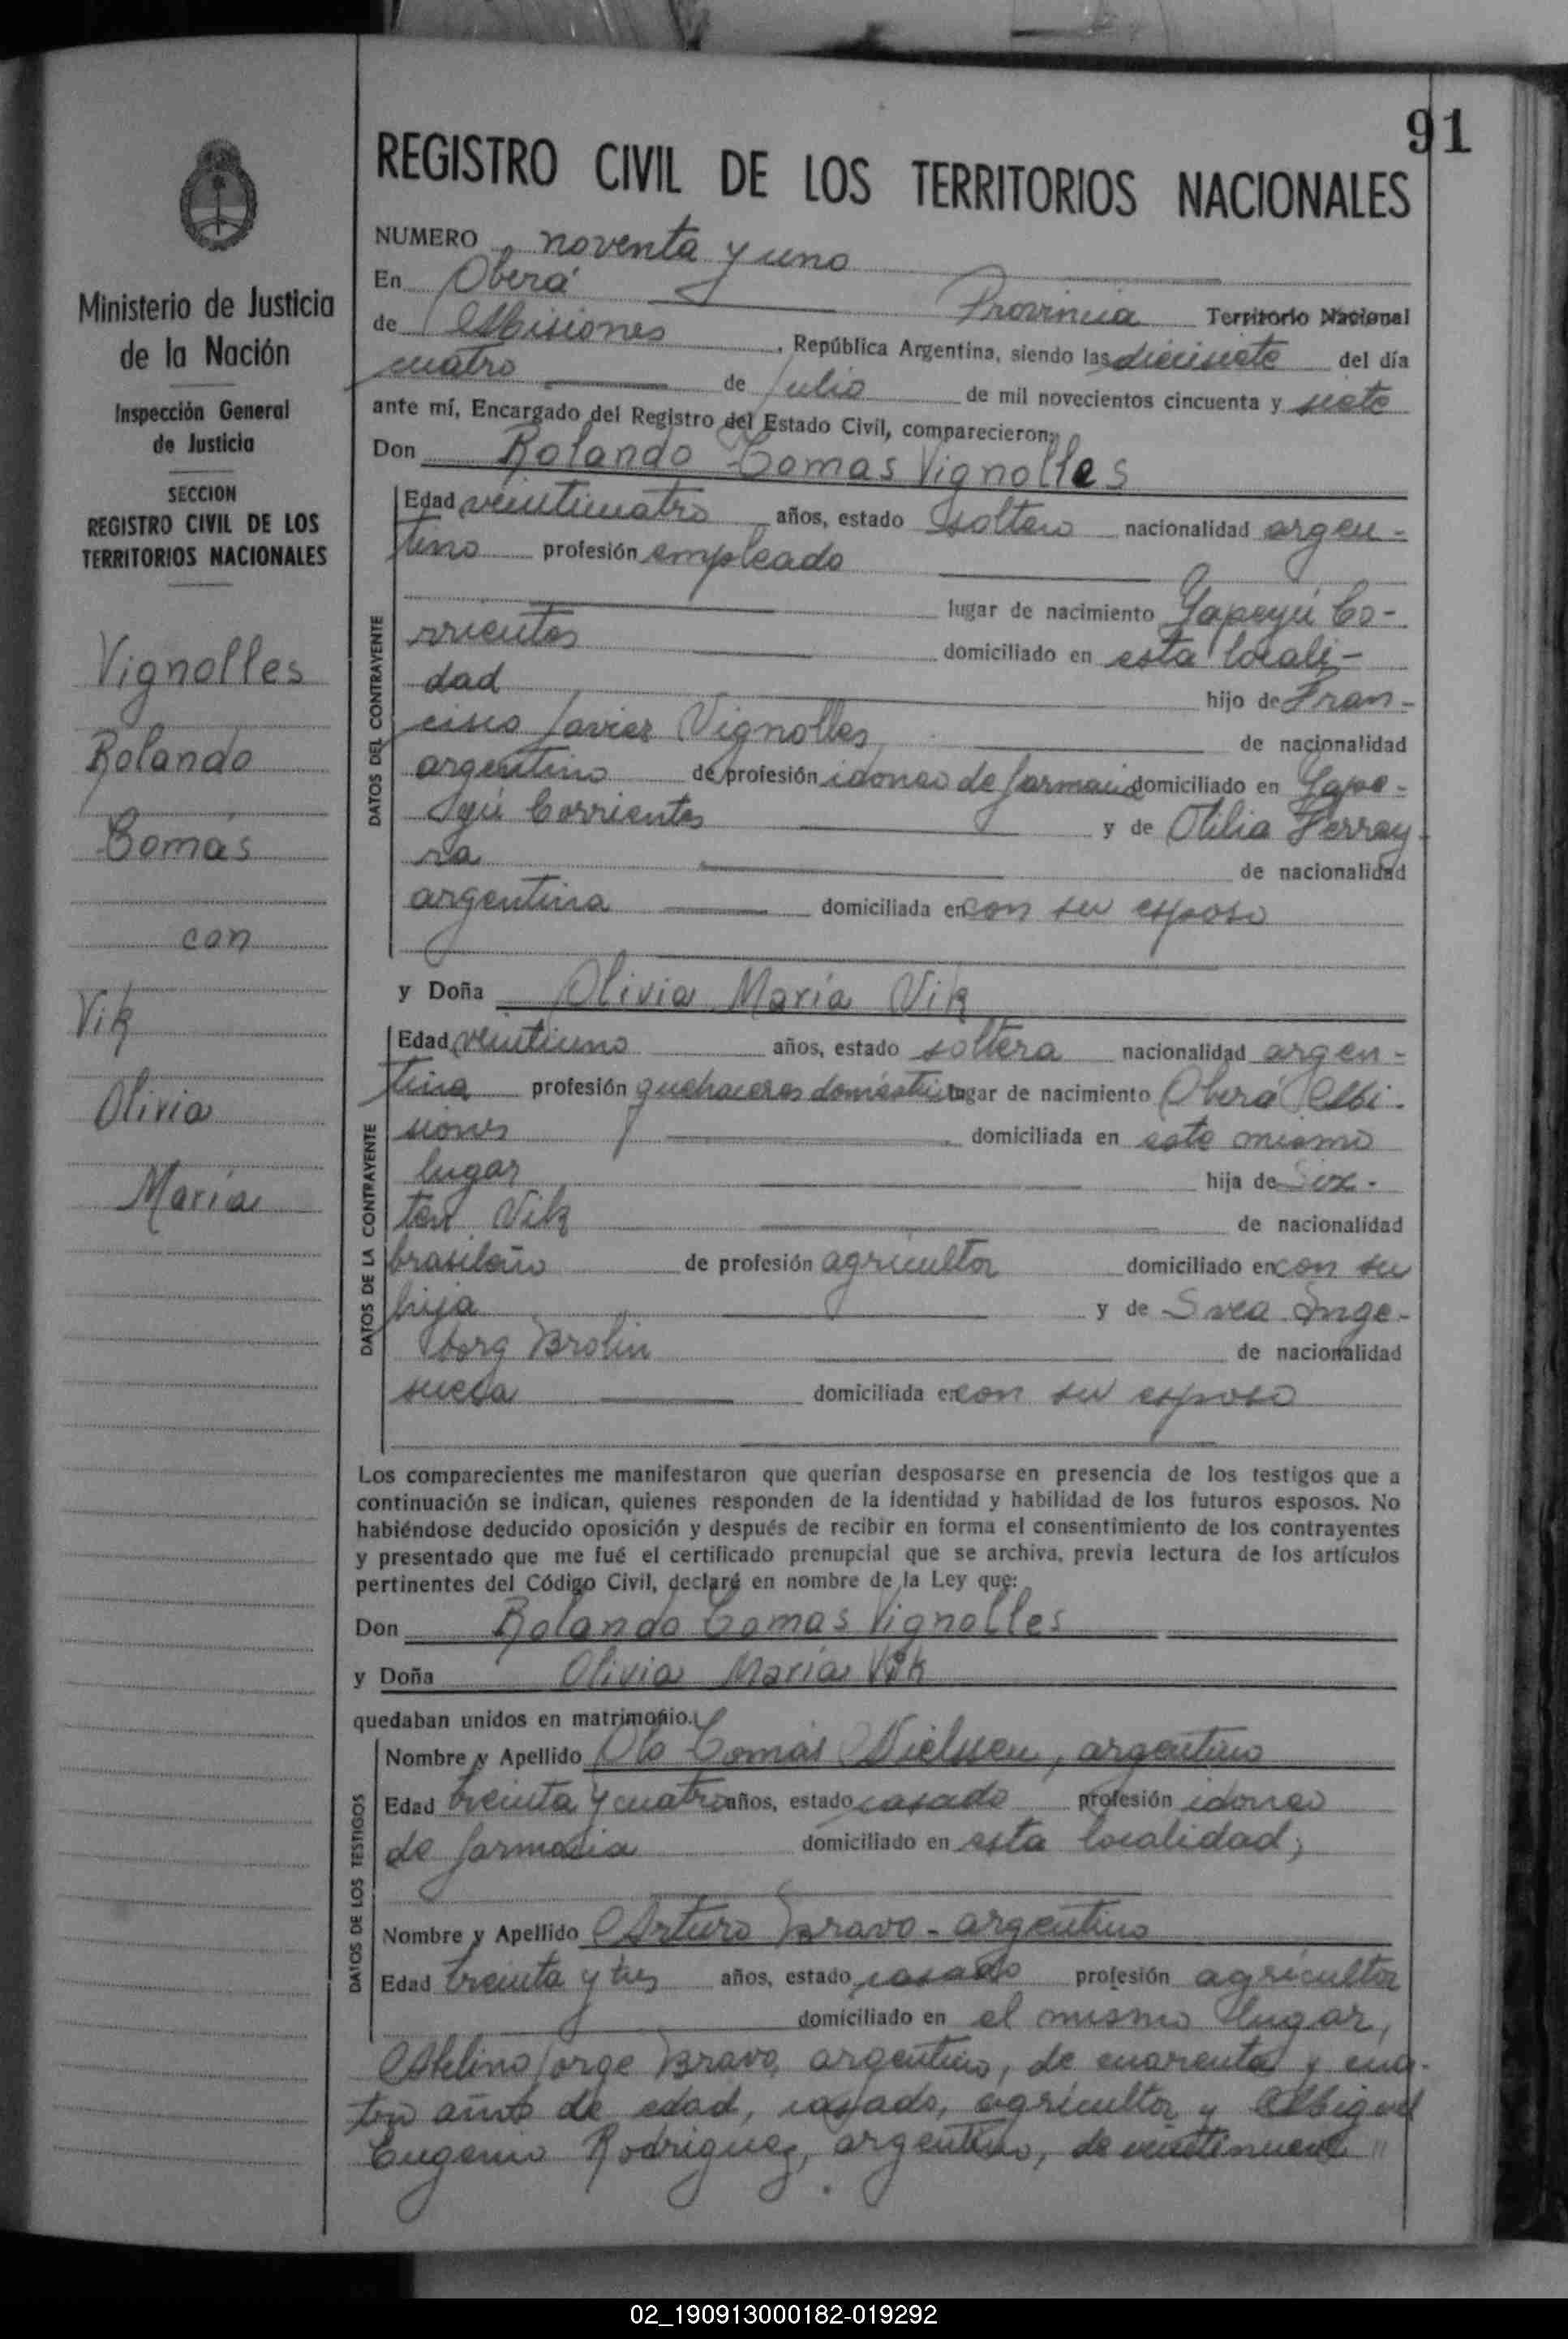 91
REGISTRO CIVIL DE LOS TERRITORIOS NACIONALES
Ministerio de Justicia
de la Nación
Inspección General
de Justicia
SECCION
REGISTRO CIVIL DE LOS
TERRITORIOS NACIONALES
Vignolles
Rolando
Tomás
con
Vik
Olivia
María
NUMERO noventa y uno
En Oberá Provincia Territorio Nacional
de Misiones, República Argentina, siendo las diecisiete del día
cuatro de Julio de mil novecientos cincuenta y siete
ante mí, Encargado del Registro del Estado Civil, comparecieron:
Don Rolando Tomas Vignolles
DATOS DEL CONTRAYENTE
Edad veinticuatro años, estado soltero nacionalidad argen-
tino profesión empleado
lugar de nacimiento Yapeyú Co-
rrientes domiciliado en esta locali-
dad hijo de Fran-
cisco Javier Vignolles de nacionalidad
argentino de profesión idoneo de farmacia domiciliado en Yape-
yú Corrientes y de Otilia Ferrey-
ra de nacionalidad
argentina domiciliada en con su esposo
y Doña Olivia María Vik
DATOS DE LA CONTRAYENTE
Edad veintiuno años, estado soltera nacionalidad argen-
tina profesión quehaceres domésticos lugar de nacimiento Oberá Mi-
siones domiciliada en este mismo
lugar hija de Six-
ten Vik de nacionalidad
brasileño de profesión agricultor domiciliado en con su
hija y de Svea Inge-
borg Brolin de nacionalidad
sueca domiciliada en con su esposo
Los comparecientes me manifestaron que querían desposarse en presencia de los testigos que a
continuación se indican, quienes responden de la identidad y habilidad de los futuros esposos. No
habiéndose deducido oposición y después de recibir en forma el consentimiento de los contrayentes
y presentado que me fué el certificado prenupcial que se archiva, previa lectura de los artículos
pertinentes del Código Civil, declaré en nombre de la Ley que:
Don Rolando Tomas Vignolles
y Doña Olivia María Vik
quedaban unidos en matrimonio.
DATOS DE LOS TESTIGOS
Nombre y Apellido Olo Tomás Nielssen, argentino
Edad treinta y cuatro años, estado casado profesión idoneo
de farmacia domiciliado en esta localidad;
Nombre y Apellido Arturo Bravo - argentino
Edad treinta y tres años, estado casado profesión agricultor
domiciliado en el mismo lugar,
Avelino Jorge Bravo, argentino, de cuarenta y cua-
tro años de edad, casado, agricultor y Miguel
Eugenio Rodriguez, argentino, de veintinueve "
02_190913000182-019292